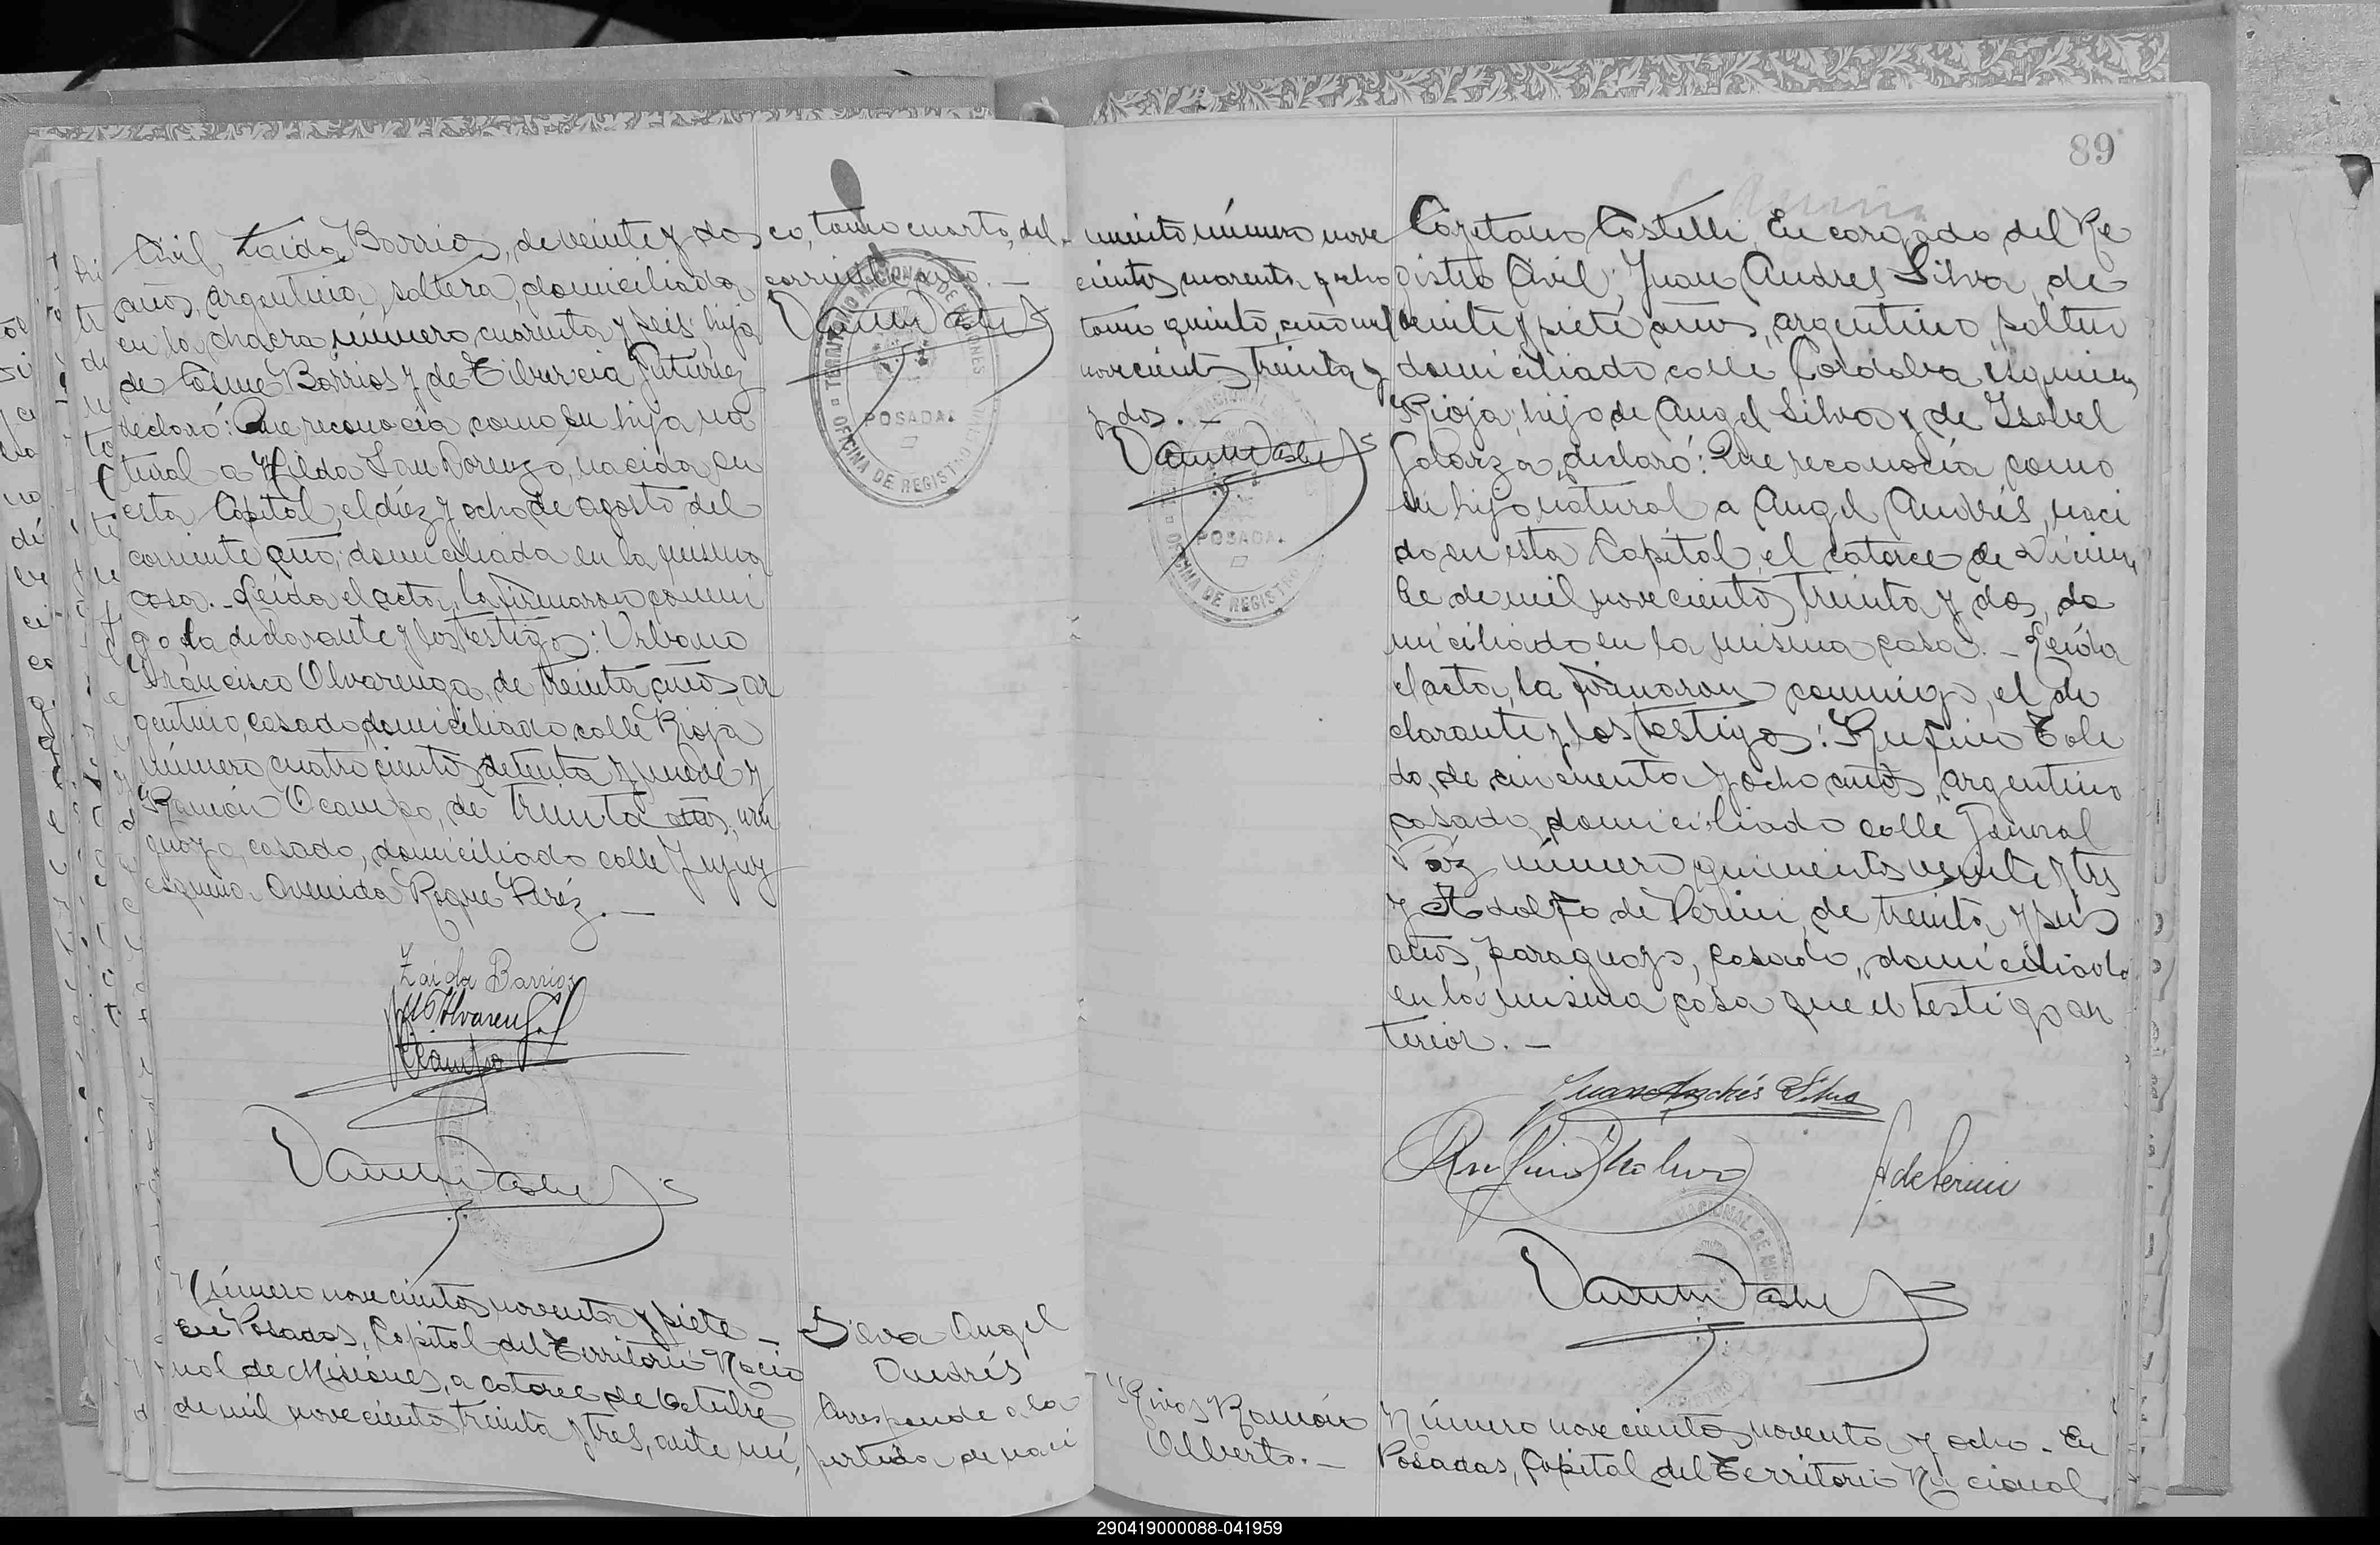 Civil, Zaida Barrios, de veinte y dos
años, argentina, soltera, domiciliada
en la chacra número cuarenta y seis, hija
de Cosme Barrios y de Tiburcia Gutierrez
declaró: Que reconocía como su hija na
tural a Hilda San Lorenzo, nacida en
esta Capital, el diez y ocho de agosto del
corriente año; domiciliada en la misma
casa. - Leída el acta, la firmaron conmi
go la declarante y los testigos: Urbano
Francisco Olvarenga, de treinta años, ar
gentino, casado, domiciliado calle Rioja
número cuatrocientos setenta y nueve y
Ramón Ocampo, de treinta años, uru
guayo, casado, domiciliado calle Jujuy
esquina Avenida Roque Peréz. -
Zaida Barrios
Número novecientos noventa y siete -
En Posadas, Capital del Territorio Nacio
nal de Misiones, a catorce de Octubre
de mil novecientos treinta y tres, ante mí,
co, tomo cuarto, del
corriente año. -
TERRITORIO NACIONAL DE MISIONES
POSADAS
OFICINA DE REGISTRO
Silva Angel
Andrés
Corresponde a la
partida de naci
89
miento número nove
cientos cuarenta y ocho
tomo quinto, año mil
novecientos treinta y
y dos. -
POSADAS
OFICINA DE REGISTRO
Cayetano Castelli, Encargado del Re
gistro Civil; Juan Andres Silva, de
veinte y siete años, argentino, soltero
domiciliado calle Córdoba esquina
Rioja, hijo de Angel Silva y de Isabel
Galarza, declaró: Que reconocía como
su hijo natural a Angel Andrés, naci
do en esta Capital, el catorce de Diciem
bre de mil novecientos treinta y dos, do
miciliado en la misma casa. - Leída
el acta, la firmaron conmigo, el de
clarante y los testigos: Rufino Tole
do, de cincuenta y ocho años, argentino
casado, domiciliado calle General
Paz número quinientos veinte y tres
y Adolfo de Perini, de treinta y seis
años, paraguayo, casado, domiciliado
en la misma casa que el testigo an
terior. -
Juan Andrés Silva
A de Perini
Rivas Ramón
Alberto. -
Número novecientos noventa y ocho - En
Posadas, Capital del Territorio Nacional
290419000088-041959